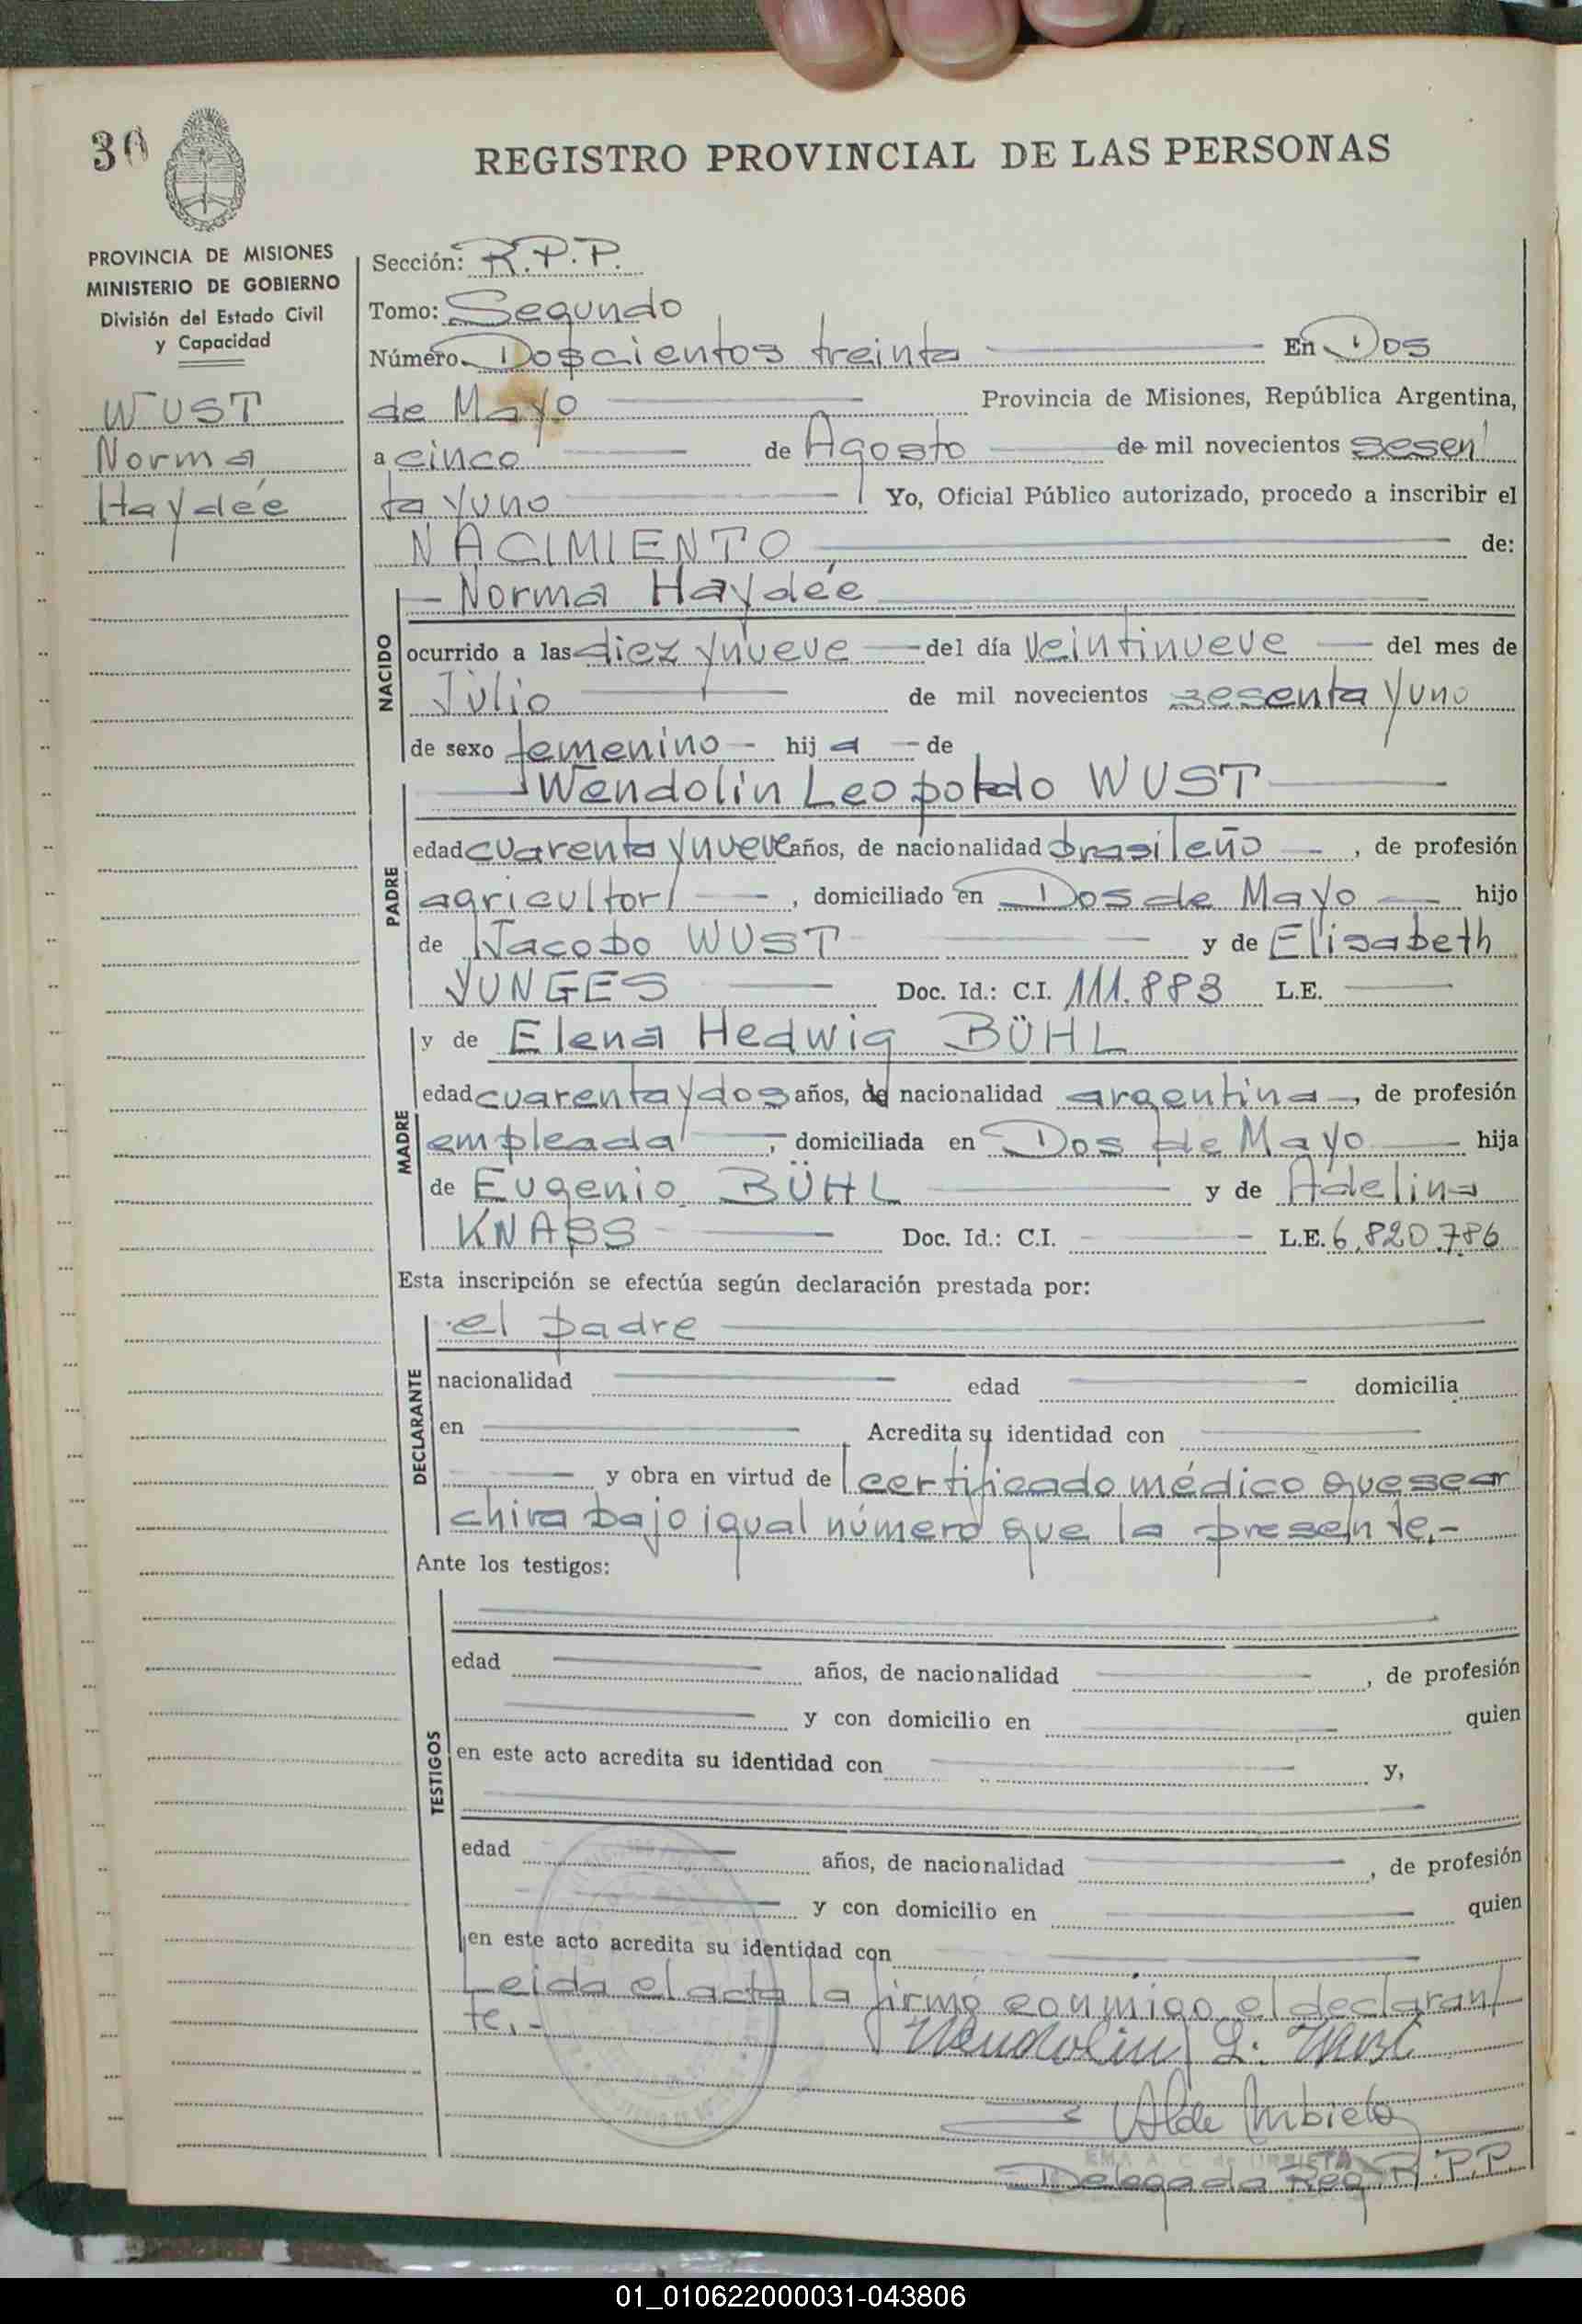 30
REGISTRO PROVINCIAL DE LAS PERSONAS
PROVINCIA DE MISIONES
MINISTERIO DE GOBIERNO
División del Estado Civil
y Capacidad
WUST
Norma
Haydée
Sección: R.P.P.
Tomo: Segundo
Número Doscientos treinta En Dos
de Mayo Provincia de Misiones, República Argentina,
a cinco de Agosto de mil novecientos sesen
ta y uno Yo, Oficial Público autorizado, procedo a inscribir el
NACIMIENTO de:
Norma Haydée
NACIDO
ocurrido a las diez y nueve del día veintinueve del mes de
Julio de mil novecientos sesenta y uno
de sexo femenino - hij a - de
Wendolin Leopoldo WUST
PADRE
edad cuarenta y nueve años, de nacionalidad brasileño, de profesión
agricultor, domiciliado en Dos de Mayo hijo
de Jacobo WUST y de Elisabeth
YUNGES Doc. Id.: C.I. 111.883 L.E.
y de Elena Hedwig BÜHL
MADRE
edad cuarenta y dos años, de nacionalidad argentina, de profesión
empleada, domiciliada en Dos de Mayo hija
de Eugenio BÜHL y de Adelina
KNASS Doc. Id.: C.I. L.E. 6.820.786
Esta inscripción se efectúa según declaración prestada por:
el padre
DECLARANTE
nacionalidad edad domicilia
en Acredita su identidad con
y obra en virtud de certificado médico que se ar
chiva bajo igual número que la presente.-
Ante los testigos:
TESTIGOS
edad años, de nacionalidad, de profesión
y con domicilio en quien
en este acto acredita su identidad con y,
edad años, de nacionalidad, de profesión
y con domicilio en quien
en este acto acredita su identidad con
Leida el acta la firmó conmigo el declaran
te.-
Wendolin L. Wust
Alde Urbieta
EMA A. C. de URBIETA
Delegada Reg. R.P.P.
01_010622000031-043806